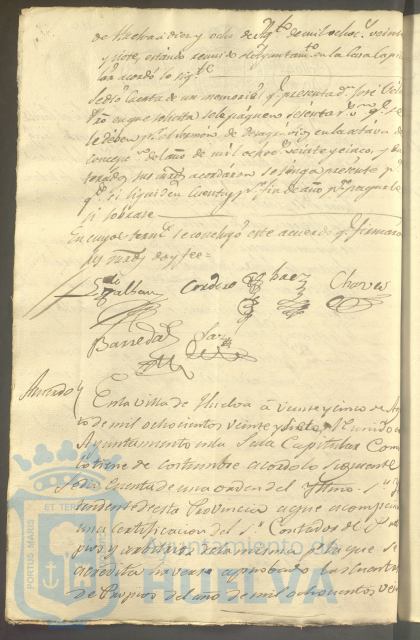 de Huelva à diez y ocho de Ag.to de mil ochoc.s veinte
y siete, estando reunido el Ayuntam.to en la Sala Capitu
lar acordó lo sig.te
Se dió Cuenta de un memorial q.e presenta d.n José
en que solicita se le paguen sesenta r.s v.n q.e
le deben p.r el sermon de desagravios en la octava de
Concep.n del año de mil ochoc.s veinte y cinco, y en
terados sus mrds acordaron se tenga presente p.a
q.do si liquiden Cuentas p.r fin de año p.a pagarlo
si sobrase
En cuyos term.s se concluyó este acuerdo q.e firmaron
sus mrds doy fee=
Cordero Baez Chaves
Barreda
Acuerdo
En la villa de Huelva à veinte y cinco de Ag.
to de mil ochocientos veinte y siete, Reunido el
Ayuntamiento en la Sala Capitular Como
lo tiene de costumbre acordó lo siguiente
Se dió Cuenta de una orden del Yltmo. S.r Yn
tendente de esta Provincia a que acompaña
una certificacion del S.r Contador de Pro
pios y arbitrios de la misma p.r la que se
acredita haverse aprobado las Cuentas
de Propios del año de mil ochocientos vein
PORTUS MARIS ET TERRAE
Ayuntamiento de
HUELVA